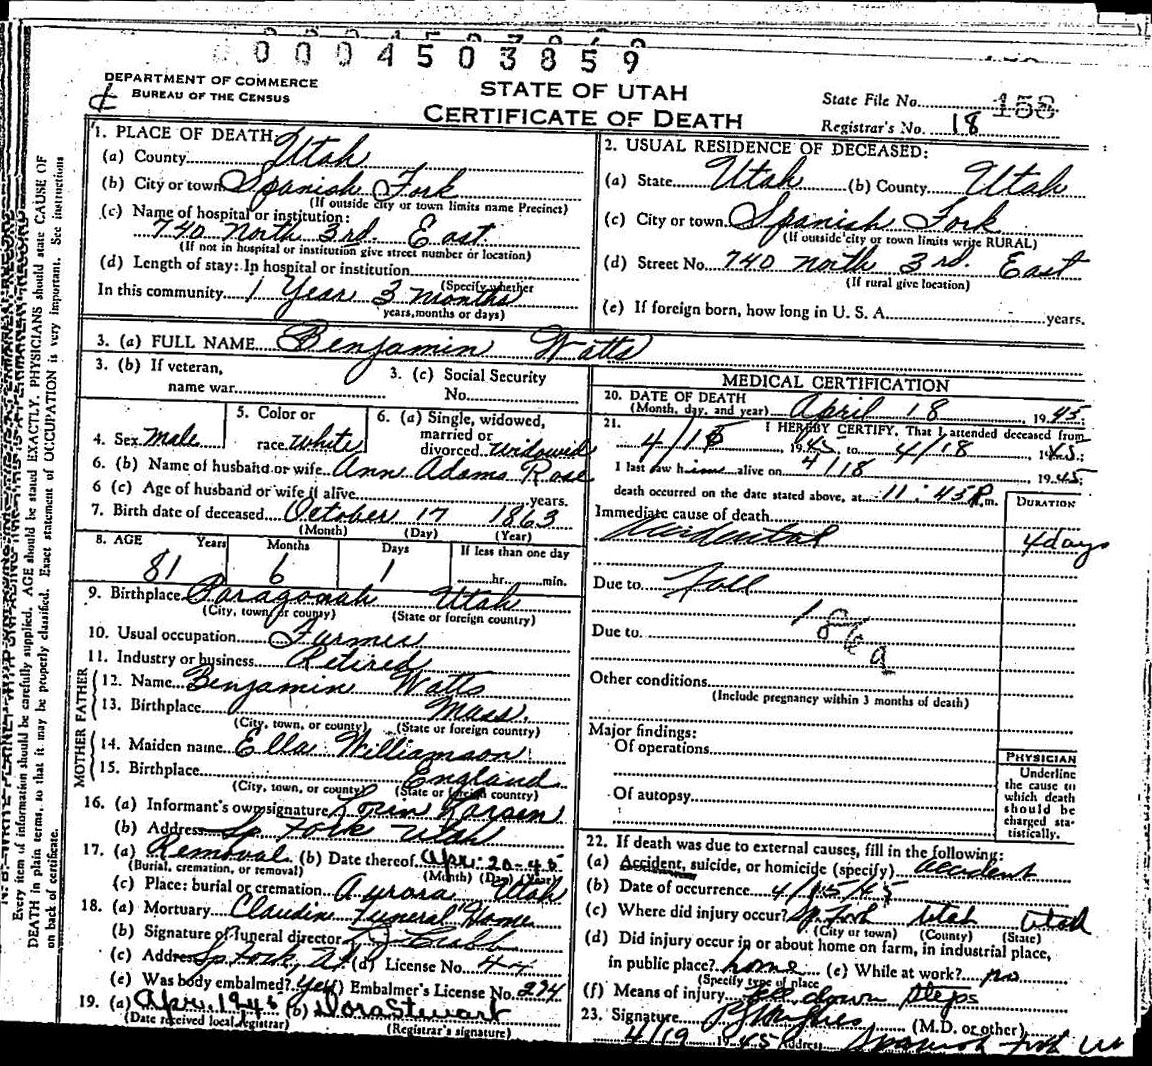 0004503859
DEPARTMENT OF COMMERCE
BUREAU OF THE CENSUS
STATE OF UTAH
CERTIFICATE OF DEATH
State File No. 158
Registrar's No. 18
1. PLACE OF DEATH:
(a) County Utah
(b) City or town Spanish Fork
(If outside city or town limits name Precinct)
(c) Name of hospital or institution:
740 North 3rd. East.
(If not in hospital or institution give street number or location)
(d) Length of stay: In hospital or institution
(Specify whether
In this community 1 Year 3 months
years, months or days)
2. USUAL RESIDENCE OF DECEASED:
(a) State Utah (b) County Utah
(c) City or town Spanish Fork
(If outside city or town limits write RURAL)
(d) Street No. 740 north 3rd. East
(If rural give location)
(e) If foreign born, how long in U. S. A. years.
3. (a) FULL NAME Benjamin Watts
3. (b) If veteran,
name war
3. (c) Social Security
No.
4. Sex male
5. Color or
race white
6. (a) Single, widowed,
married or
divorced widowed
6. (b) Name of husband or wife Ann Adams Rose
6 (c) Age of husband or wife if alive years.
7. Birth date of deceased October 17 1863
(Month) (Day) (Year)
8. AGE Years Months Days If less than one day
81 6 1 hr. min.
9. Birthplace Paragonah Utah
(City, town, or county) (State or foreign country)
10. Usual occupation Farmer
11. Industry or business Retired
FATHER
12. Name Benjamin Watts
13. Birthplace Mass.
(City, town, or county) (State or foreign country)
MOTHER
14. Maiden name Ella Williamson
15. Birthplace England
(City, town, or county) (State or foreign country)
16. (a) Informant's own signature Loren Larsen
(b) Address Sp. Fork Utah
17. (a) Removal (b) Date thereof Apr. 20-45
(Burial, cremation, or removal) (Month) (Day) (Year)
(c) Place: burial or cremation Aurora Utah
18. (a) Mortuary Claudin Funeral Home
(b) Signature of funeral director
(c) Address Sp. Fork, (d) License No. 44
(e) Was body embalmed? yes (f) Embalmer's License No. 274
19. (a) Apr. 1945 (b) Dora Stewart
(Date received local registrar) (Registrar's signature)
MEDICAL CERTIFICATION
20. DATE OF DEATH
(Month, day, and year) April 18, 1945.
21. I HEREBY CERTIFY, That I attended deceased from
4/15 1945 to 4/18, 1945;
I last saw him alive on 4/18, 1945;
death occurred on the date stated above, at 11:45 P.m.
DURATION
Immediate cause of death
Accidental 4 days
Due to Fall
186a
Due to
Other conditions
(Include pregnancy within 3 months of death)
Major findings:
Of operations
Of autopsy
PHYSICIAN
Underline
the cause to
which death
should be
charged sta-
tistically.
22. If death was due to external causes, fill in the following:
(a) Accident, suicide, or homicide (specify) accident
(b) Date of occurrence 4/15/45
(c) Where did injury occur? Sp. Fork Utah Utah
(City or town) (County) (State)
(d) Did injury occur in or about home on farm, in industrial place,
in public place? home (e) While at work? no
(Specify type of place
(f) Means of injury fell down steps
23. Signature Hughes (M.D. or other)
4/19 1945 Address Spanish Fork Ut
Every item of information should be carefully supplied. AGE should be stated EXACTLY. PHYSICIANS should state CAUSE OF
DEATH in plain terms, so that it may be properly classified. Exact statement of OCCUPATION is very important. See instructions
on back of certificate.